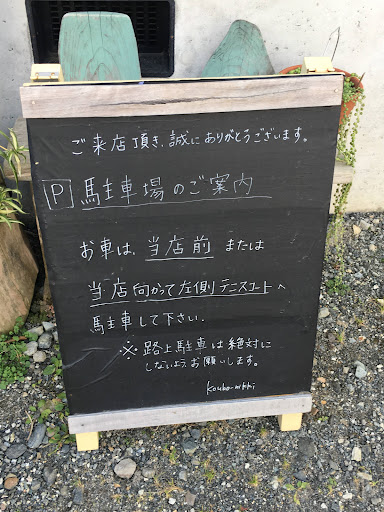 ご来店頂き、誠にありがとうございます。
P 駐車場のご案内
お車は、当店前 または
当店向かって左側テニスコートへ
駐車して下さい.
※路上駐車は絶対に
しないよう、お願いします。